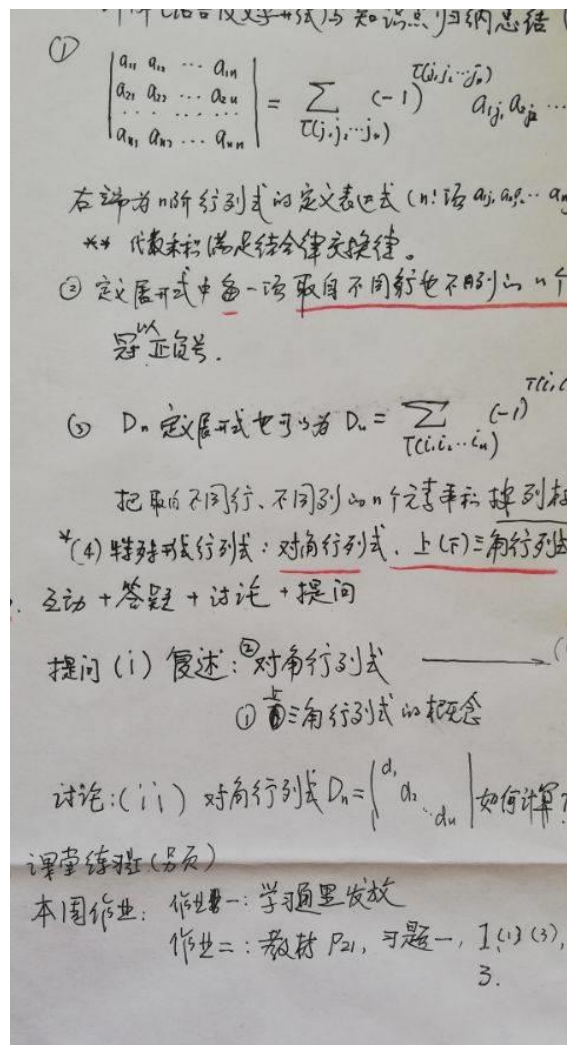 知识点归纳总结(
①
| a₁₁ a₁₂ ⋯ a₁ₙ |
| a₂₁ a₂₂ ⋯ a₂ₙ |
| ⋯⋯⋯⋯ |
| aₙ₁ aₙ₂ ⋯ aₙₙ | = ∑ τ(j₁j₂⋯jₙ) (-1)^τ(j₁j₂⋯jₙ) a₁j₁ a₂j₂ ⋯
右端为n阶行列式的定义表达式(n!项
** 代数乘积满足结合律交换律。
② 定义展开式中每一项取自不同行也不同列的n个
冠以正负号.
③ Dₙ定义展开式也可以为 Dₙ = ∑ τ(i₁i₂⋯iₙ) (-1)^τ(i₁i
把取自不同行、不同列的n个元素乘积按列标
*(4) 特殊形式行列式:对角行列式、上(下)三角行列式
互动+答疑+讨论+提问
提问(i) 复述:②对角行列式 ⟶ (
①上三角行列式的概念
讨论:(ii) 对角行列式Dₙ=| d₁ d₂ ⋱ dₙ |如何计算?
课堂练习(另页)
本周作业: 作业一:学习通里发放
作业二:教材P21,习题一,1(1)(3),
3.